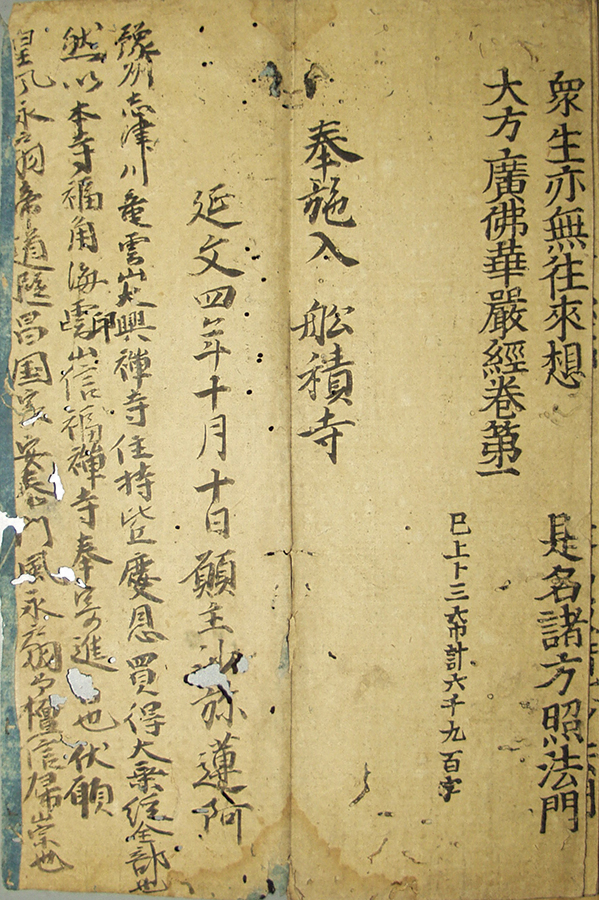 衆生亦無往來想 是名諸方照法門
大方廣佛華嚴經卷第一
已上卜三大巾計六千九百字
奉施入 舩積寺
延文四年十月十日 願主沙弥蓮阿
豫州志津川竜雲山大興禅寺住持比丘慶恩買得大乘經全部也
然以本寺福角海雲山信福禅寺奉寄進也伏願
印
皇風永扇帝道遐昌国家安泰門風永扇檀信帰崇也